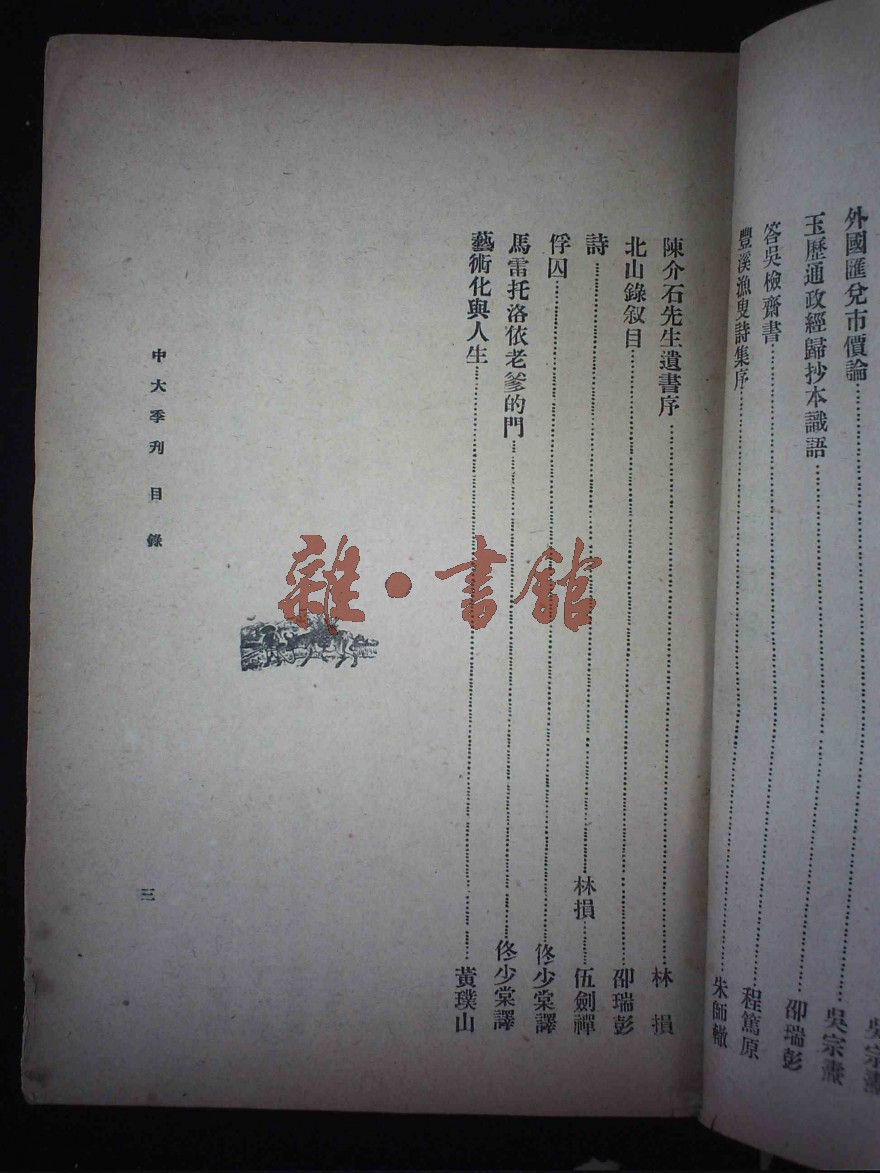 吳宗燾
外國匯兌市價論……吳宗燾
玉歷通政經歸抄本識語……邵瑞彭
答吳檢齋書……程篤原
豐溪漁叟詩集序……朱師轍
陳介石先生遺書序……林 損
北山錄敘目……邵瑞彭
詩……林損……伍劍禪
俘囚……佟少棠譯
馬雷托洛依老爹的門……佟少棠譯
藝術化與人生……黃璞山
中大季刊 目錄
三
雜·書館